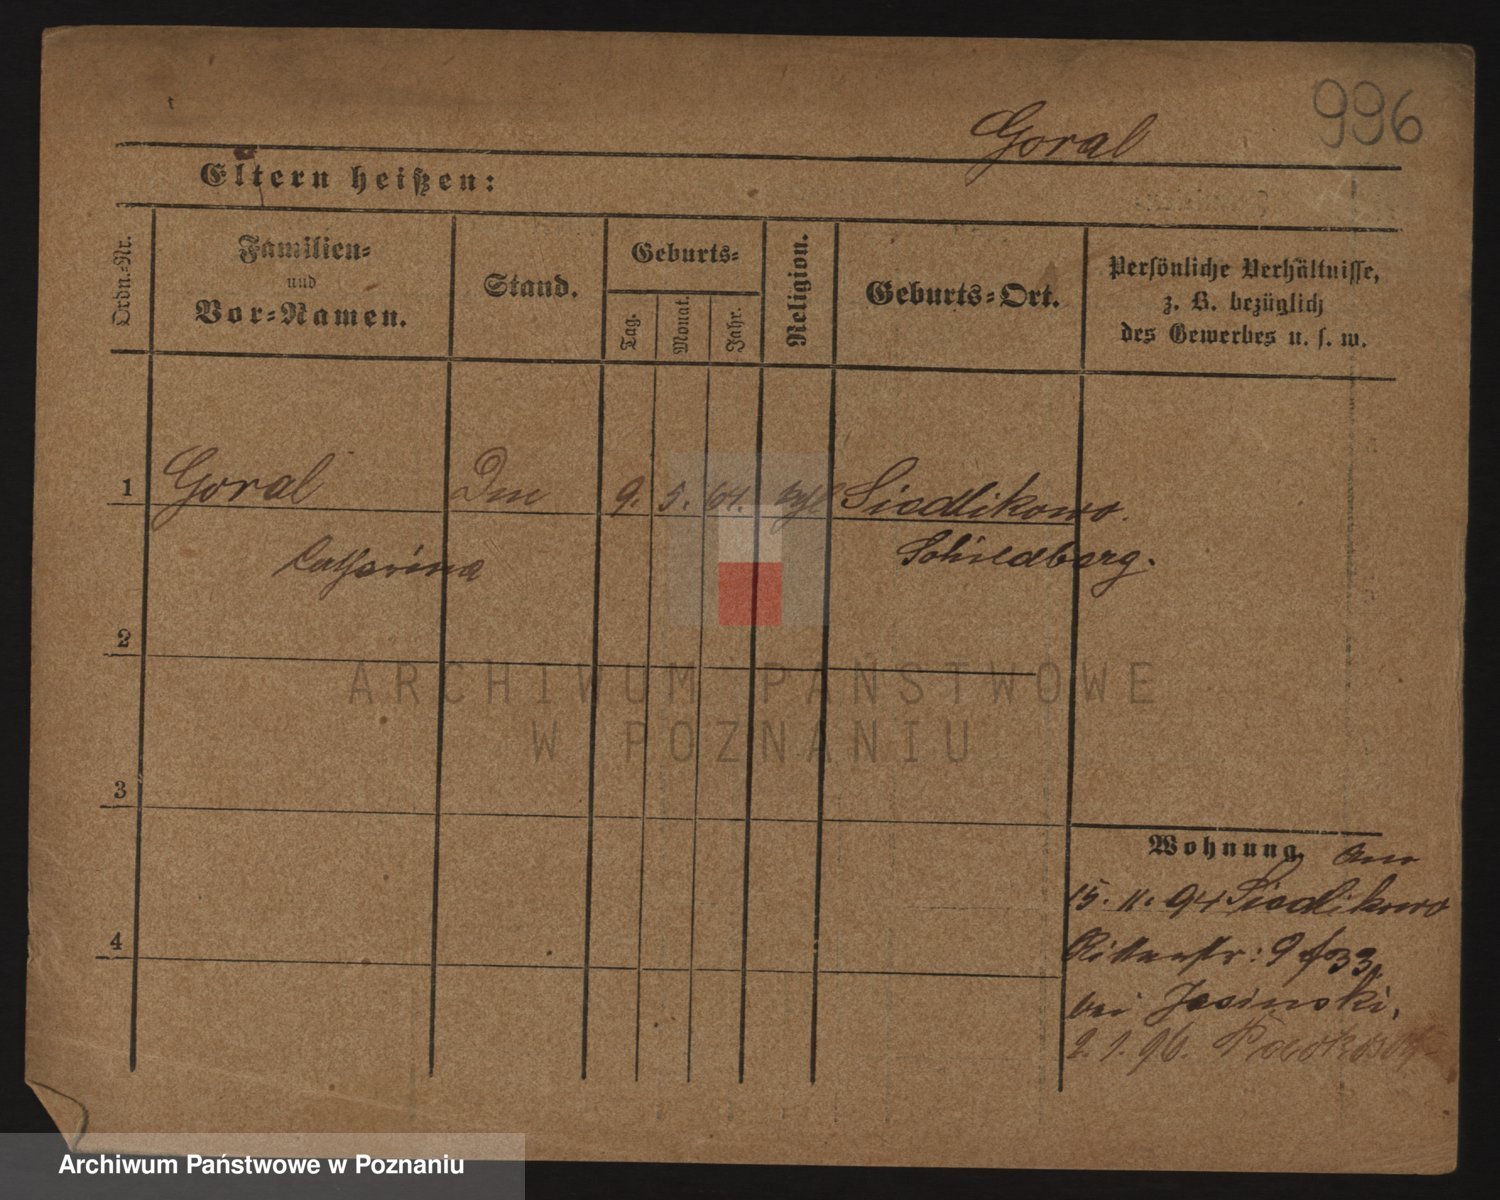 996
Goral
Eltern heißen:
Ordn.-Nr.
Familien-
und
Vor-Namen.
Stand.
Geburts-
Tag.
Monat.
Jahr.
Religion.
Geburts-Ort.
Persönliche Verhältnisse,
z. B. bezüglich
des Gewerbes u. s. w.
1 Goral 9. 5. 64. Siedlikowo.
Catharina Schildberg.
2
3
4
Wohnung.
15. 11. 94 Siedlikowo
Ritterstr: 9
bei Jasinski,
2. 1. 96.
ARCHIWUM PAŃSTWOWE
W POZNANIU
Archiwum Państwowe w Poznaniu